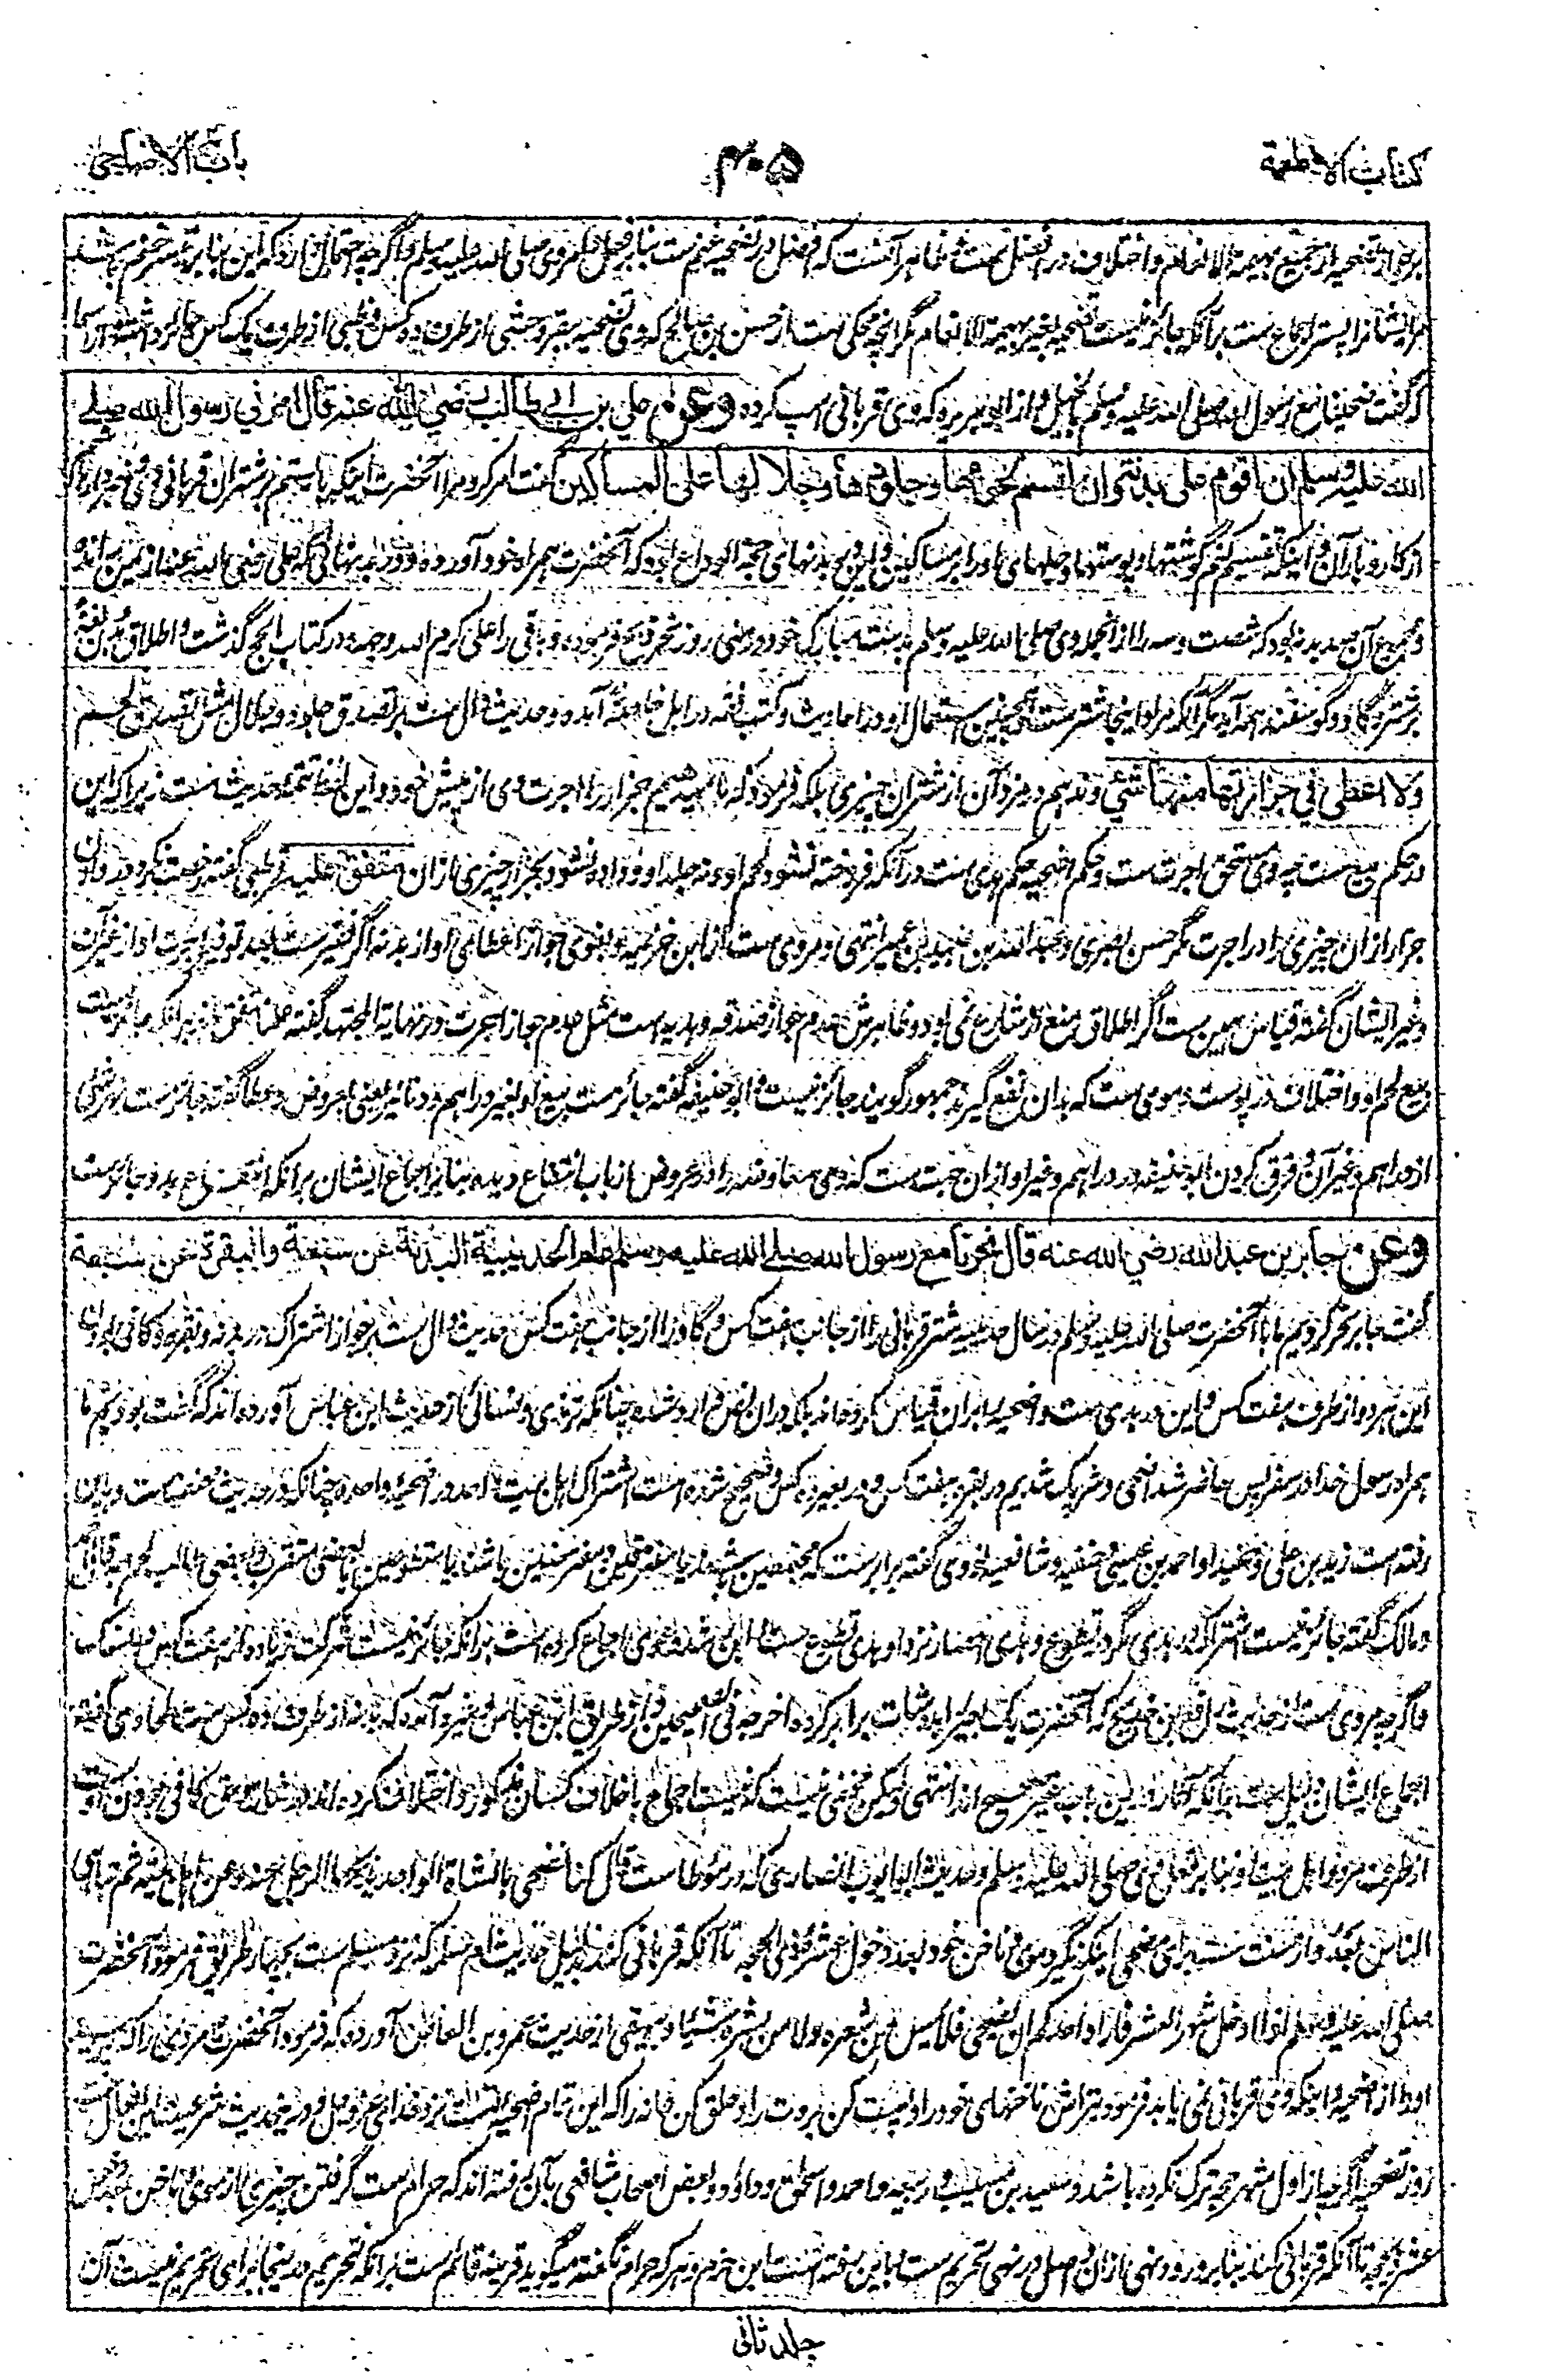 کتاب الاطعمة
۴۰۵
باب الاضاحی
بر جواز تضحیه از جمیع بهیمة الانعام و اختلاف در افضل ست و ظاهر آنست که افضل در تضحیه غنم ست بنابر فعل و امر وی صلی الله علیه وسلم و اگرچه احتمال دارد که این بنابر تیسر غنم باشد
مر ایشانرا پستر اجماع ست بر آنکه جائز نیست تضحیه بغیر بهیمة الانعام مگر انچه محکی ست از حسن بن صالح که وی تضحیه ببقر وحشی از طرف ده کس و ظبی از طرف یک کس جائز داشته و از اسما
که گفت ضحینا مع رسول الله صلی الله علیه وسلم بالخیل و از ابو هریره که وی قربانی اسپ کرده وعن علي بن ابي طالب رضي الله عنه قال امرني رسول الله صلے
الله علیه وسلم ان اقوم علی بدنه وان اقسم لحومها وجلودها وجلالها علی المساکین گفت امر کرد مرا آنحضرت اینکه بایستم بر شتران قربانی وی و خبردار باشم
از کاروبار آن و اینکه تقسیم کنم گوشتها و پوستها و جلهای او را بر مساکین و این بدنهای حجة الوداع بود که آنحضرت همراه خود آورده بود و بدنهائی که علی رضی الله عنه از یمن رسانده
و مجموع آن صد بدنه بود که شصت و سه را از آنجمله وی صلی الله علیه وسلم بدست مبارک خود در منی روز نحر ذبح فرموده و باقی را علی کرم الله وجهه در کتاب الحج گذشت و اطلاق بدن لغةً
بر شتر و گاو و گوسفند همه آید مگر آنکه مراد اینجا شتر ست و همچنین استعمال او در احادیث و کتب فقه در ابل خاصةً آمده و حدیث دال ست بر تصدق جلود و جلال مثل تصدق لحم
ولا اعطی في جزارتها منها شیئًا و ندهم در مزد آن از شتران چیزی بلکه فرمود که ما میدهیم جزار را اجرت وی از پیش خود و این لفظ تتمه حدیث ست زیرا که این
در حکم بیع ست چه وی مستحق اجرت ست و حکم اضحیه حکم هدی ست در آنکه فروخته نشود لحم او و نه جلد او و داده نشود بجزار چیزی ازان متفق علیه قرطبی گفته رخصت نکرد در دادن
جزار ازان چیزی را در اجرت مگر حسن بصری و عبد الله بن عبید بن عمیر انتهی و مروی ست از ابن خزیمه و بغوی جواز اعطای او از بدنه اگر فقیر ست بعد توفیه اجرت او از غیر آن
و غیر ایشان گفته قیاس همین ست اگر اطلاق منع از شارع نمی بود و ظاهرش عدم جواز صدقه و هدیه ست مثل عدم جواز اجرت و در نهایة المجتهد گفته علما متفق اند بر آنکه جائز نیست
بیع لحم او و اختلاف در پوست و موی ست که بدان نفع گیرند جمهور گویند جائز نیست و ابو حنیفه گفته جائز ست بیع او بغیر دراهم و دنانیر یعنی بعروض و عطا گفته جائز ست بهر شی
از دراهم و غیر آن و فرق کردن ابو حنیفه در دراهم و غیر او ازان جهت ست که وی معاوضه را در عروض از باب انتفاع دیده بنابر اجماع ایشان بر آنکه انتفاع بدو جائز ست
وعن جابر بن عبد الله رضي الله عنه قال نحرنا مع رسول الله صلے الله علیه وسلم عام الحدیبیة البدنة عن سبعة والبقرة عن سبعة
گفت جابر نحر کردیم ما با آنحضرت صلی الله علیه وسلم در سال حدیبیه شتر قربانی را از جانب هفت کس و گاو را از جانب هفت کس حدیث دال ست بر جواز اشتراک در بدنه و بقره و کافی بودن
این هر دو از طرف هفت کس و این در هدی ست و اضحیه را بران قیاس کرده اند بلکه دران نص وارد شده چنانکه ترمذی و نسائی از حدیث ابن عباس آورده اند که گفت بودیم ما
همراه رسول خدا در سفر پس حاضر شد اضحی و شریک شدیم در بقره هفت کس و در بعیر ده کس و صحیح شده است اشتراک اهل بیت واحد در اضحیه واحده چنانکه در حدیث مخنف ست و باین
رفته است زید بن علی و حفید او احمد بن عیسی و حنفیه و شافعیه نووی گفته برابر ست که مجتمعین باشند یا متفرقین و مفترضین باشند یا متطوعین یا بعضی متقرب و بعضی طالب لحم و به قال احمد
و مالک گفته جائز نیست اشتراک در هدی مگر در تطوع و هدی احصار نزد او هدی تطوع ست و ابن رشد دعوی اجماع کرده است بر آنکه جائز نیست شرکت زیاده از هفت کس در نسک
و اگرچه مروی ست از حدیث رافع بن خدیج که آنحضرت یک بعیر را بده شاة برابر کرده اخرجه فی الصحیحین و از طریق ابن عباس و غیره آمده که بدنه از طرف ده کس ست طحاوی گفته
اجماع ایشان دلیل ست بر آنکه آثار درین باب غیر صحیح اند انتهی ولیکن مخفی نیست که نیست اجماع با خلاف کسان مذکور و اختلاف کرده اند در شاة واقع کافی بودن اوست
از طرف مرد و اهل بیت او بنابر فعل وی صلی الله علیه وسلم و حدیث ابو ایوب انصاری که در مؤطا ست قال کنا نضحی بالشاة الواحدة یذبحها الرجل عنه وعن اهل بیته ثم تباهی
الناس بعد و از سنت ست برای مضحی اینکه نگیرد موی و ناخن خود بعد دخول عشره ذی الحجه تا آنکه قربانی کند بدلیل حدیث ام سلمه که نزد مسلم ست بچهار طریق فرمود آنحضرت
صلی الله علیه وسلم اذا دخل شهر العشر فاراد احدکم ان یضحی فلا یمس من شعره ولا من بشره شیئا و بیهقی از حدیث عمرو بن العاص آورده که فرمود آنحضرت مردی را که پرسید
او را از ضحیه و اینکه وی قربانی نمی یابد فرمود بتراش ناخنهای خود را و پست کن بروت را و حلق کن عانه را که این تمام ضحیه تست نزد خدای عز وجل و درین حدیث شرعیت این افعال ست
روز تضحیه اگرچه از اول شهر حجه ترک نکرده باشد و سعید بن مسیب و ربیعه و احمد و اسحق و داود و بعض اصحاب شافعی بآن رفته اند که حرام ست گرفتن چیزی از موی و ناخن در همین
عشر ذیحجه تا آنکه قربانی کند بنابر ورود نهی ازان و اصل در نهی تحریم ست باین رفته است ابن حزم و هر که حرام نگفته میگوید قرینه قائم ست بر آنکه تحریم در اینجا برای تحریم نیست و آن
جلد ثانی